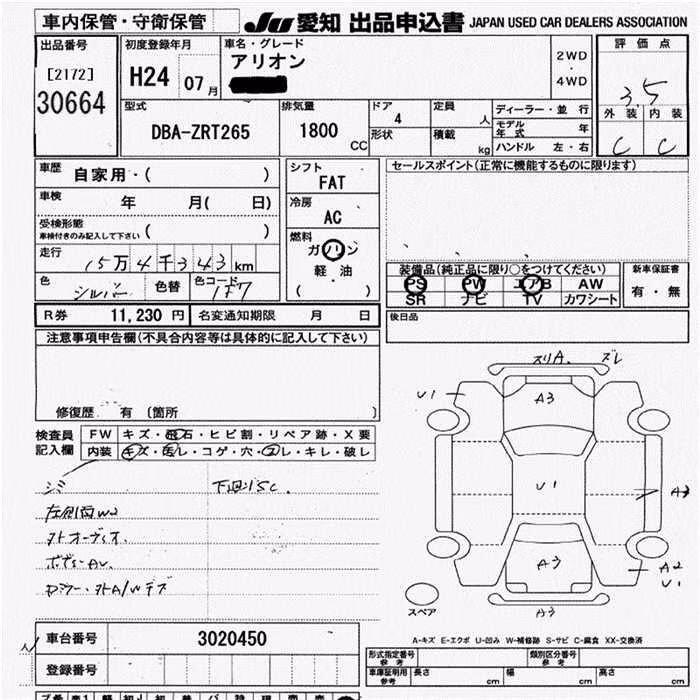 車内保管・守衛保管
JU 愛知 出品申込書 JAPAN USED CAR DEALERS ASSOCIATION
出品番号
[2172]
30664
初度登録年月
H24 07月
車名・グレード
アリオン
2WD
・
4WD
評価点
3.5
外装 内装
C C
型式
DBA-ZRT265
排気量
1800 CC
ドア
4
形状
定員
人
積載
kg
ディーラー・並行
モデル年式 年
ハンドル 左・右
車歴
自家用・( )
車検
年 月( 日)
受検形態
車検付きのみ記入して下さい ( )
走行
15万4千343km
色
シルバー 色替 色コード 1F7
シフト
FAT
冷房
AC
燃料
ガソリン
軽・油
( )
セールスポイント(正常に機能するものに限ります)
装備品(純正品に限り○をつけてください)
PS PW エアB AW
SR ナビ TV カワシート
新車保証書
有・無
後日品
R券 11,230円 名変通知期限 月 日
注意事項申告欄(不具合内容等は具体的に記入して下さい)
修復歴 有 〔箇所 〕
検査員
記入欄
FW キズ・飛石・ヒビ割・リペア跡・X要
内装 キズ・汚レ・コゲ・穴・スレ・キレ・破レ
シミ
下廻りSC.
左側面W2
外オーディオ
スリA. ズレ
U1
A3
U1
A3
A3
A2
U1
A3
スペア
A-キズ E-エクボ U-凹み W-補修跡 S-サビ C-腐食 XX-交換済
車台番号 3020450
登録番号
形式指定番号
参考
類別区分番号
参考
車庫証明用
参考
長さ cm 幅 cm 高さ cm